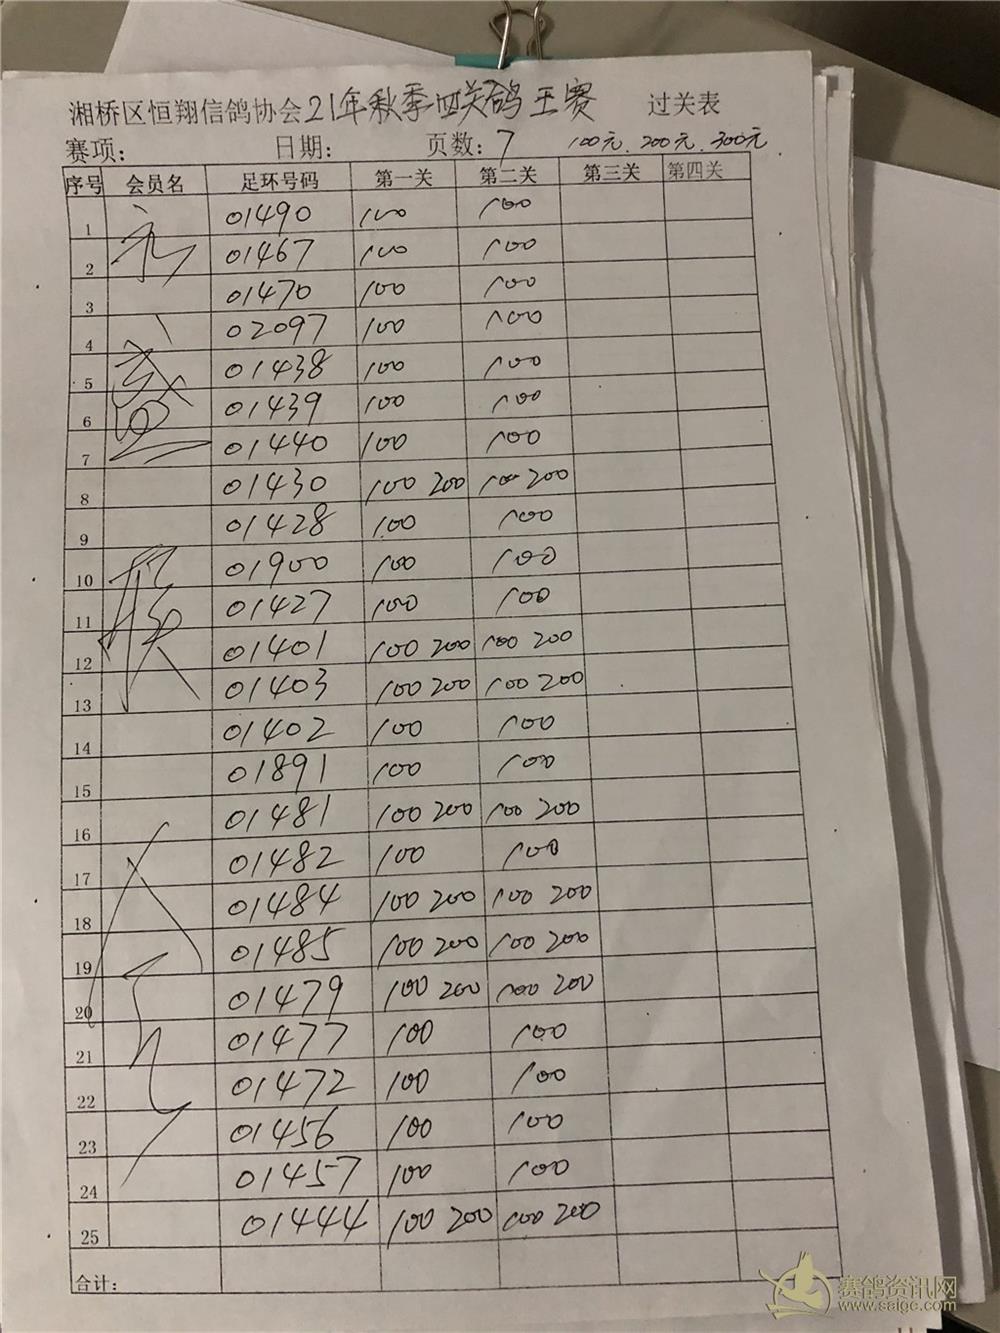 湘桥区恒翔信鸽协会21年秋季四关鸽王赛 过关表
赛项: 日期: 页数: 7 100元.200元.300元
序号 会员名 足环号码 第一关 第二关 第三关 第四关
1 01490 100 100
2 01467 100 100
3 01470 100 100
4 02097 100 100
5 01438 100 100
6 01439 100 100
7 01440 100 100
8 01430 100 200 100 200
9 01428 100 100
10 01900 100 100
11 01427 100 100
12 01401 100 200 100 200
13 01403 100 200 100 200
14 01402 100 100
15 01891 100 100
16 01481 100 200 100 200
17 01482 100 100
18 01484 100 200 100 200
19 01485 100 200 100 200
20 01479 100 200 100 200
21 01477 100 100
22 01472 100 100
23 01456 100 100
24 01457 100 100
25 01444 100 200 100 200
合计:
赛鸽资讯网
www.saige.com